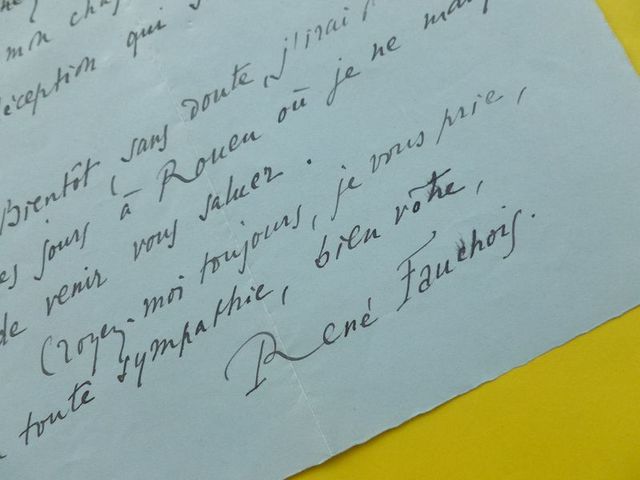 mon
qui
Bientôt, sans doute, j'irai
jours à Rouen où je ne
de venir vous saluer.
Croyez-moi toujours, je vous prie,
toute sympathie, bien vôtre,
René Fauchois.